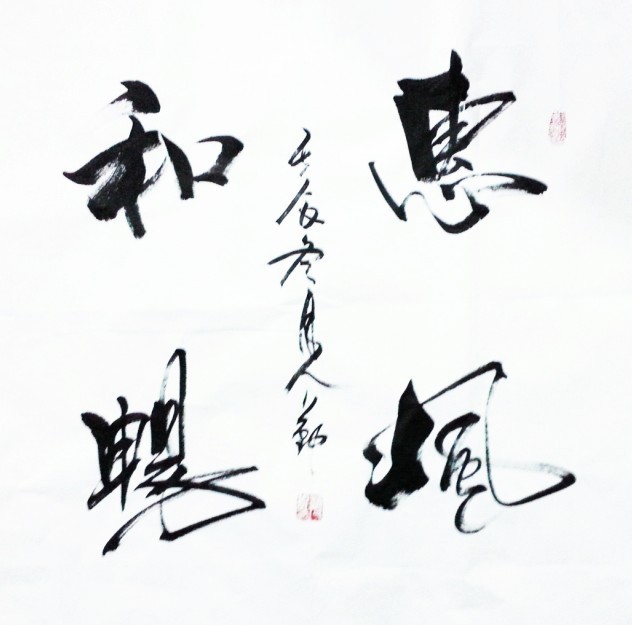 惠風
和暢
壬辰冬月